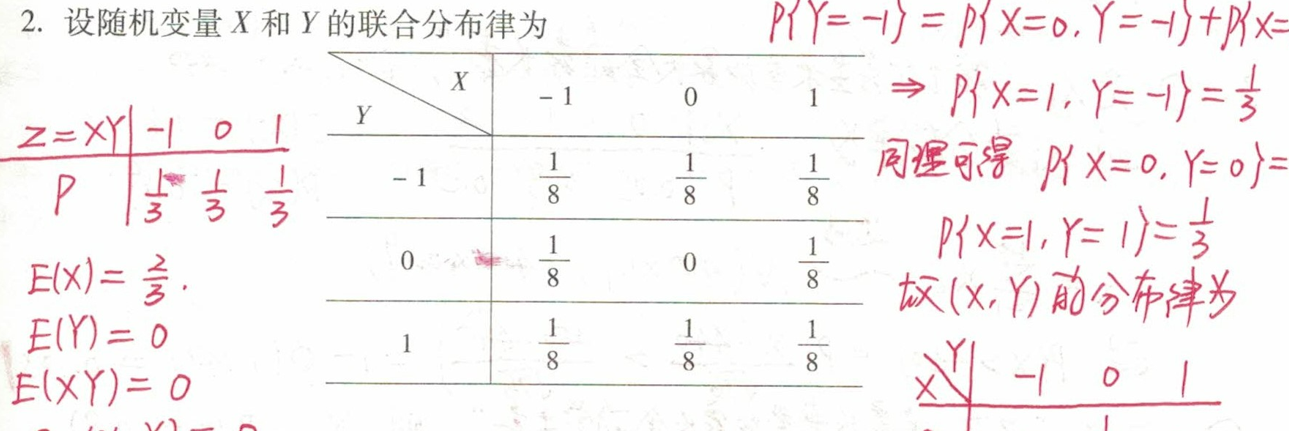 2. 设随机变量 X 和 Y 的联合分布律为
X
Y
-1 0 1
-1 1/8 1/8 1/8
0 1/8 0 1/8
1 1/8 1/8 1/8
Z=XY -1 0 1
P 1/3 1/3 1/3
E(X)=2/3.
E(Y)=0
E(XY)=0
P{Y=-1}=P{X=0,Y=-1}+P{X=
⇒ P{X=1,Y=-1}=1/3
同理可得 P{X=0,Y=0}=
P{X=1,Y=1}=1/3
故(X,Y)的分布律为
Y
X
-1 0 1